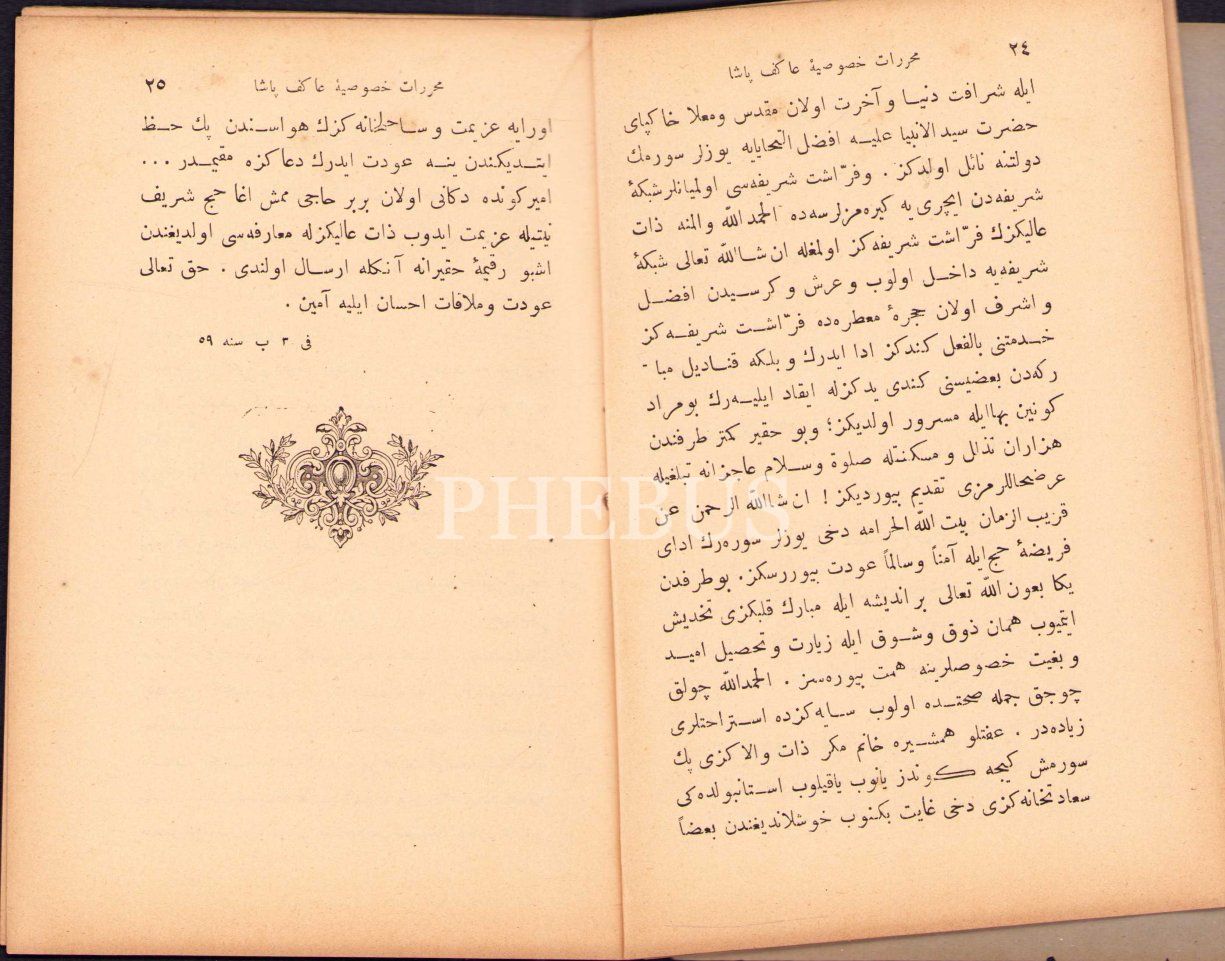 ٢٤
محررات خصوصیهٔ عاكف پاشا
ایله شرافت دنیا و آخرت اولان مقدس ومعلا خاكپای
حضرت سیدالانبیا علیه افضل التحایایه یوزلر سورمك
دولتنه نائل اولدكز . وفرّاشت شریفه‌سی اولمیانلر شبكهٔ
شریفه‌دن ایچری یه كیره‌مزلرسه‌ده الحمدالله والمنه ذات
عالیكزك فرّاشت شریفه‌كز اولمغله ان شاالله تعالی شبكهٔ
شریفه‌یه داخل اولوب و عرش و كرسیدن افضل
و اشرف اولان حجرهٔ معطره‌ده فرّاشت شریفه‌كز
خدمتنی بالفعل كندكز ادا ایدرك و بلكه قنادیل مبا
ركه‌دن بعضیسنی كندی یدكزله ایقاد ایلیه‌رك بومراد
كونین بهاایله مسرور اولدیكز؛ وبو حقیر كمتر طرفندن
هزاران تذلل و مسكنتله صلوة وسلام عاجزانه تبلغیله
عرضحاللرمزی تقدیم بیوردیكز ! ان شاالله الرحمن عن
قریب الزمان بیت الله‌الحرامه دخی یوزلر سوره‌رك ادای
فریضهٔ حج ایله آمناً وسالماً عودت بیوررسكز. بوطرفدن
یكا بعون الله تعالی بر اندیشه ایله مبارك قلبكزی تخدیش
ایتمیوب همان ذوق وشوق ایله زیارت وتحصیل امید
و بغیت خصوصلرینه همت بیوره‌سز . الحمدالله چولق
چوجق جمله صحتده اولوب سایه‌كزده استراحتلری
زیاده‌در . عفتلو همشیره خانم مكر ذات والاكزی پك
سورمش كیجه كوندز یانوب یاقیلوب استانبولده‌كی
سعادتخانه‌كزی دخی غایت بكنوب خوشلاندیغندن بعضاً
محررات خصوصیهٔ عاكف پاشا
٢٥
اورایه عزیمت وساحلخانه‌كزك هواسندن پك حظ
ایتدیكندن ینه عودت ایدرك دعاكزه مقیمدر ...
امیركونده دكانی اولان بربر حاجی ممش اغا حج شریف
نیتیله عزیمت ایدوب ذات عالیكزله معارفه‌سی اولدیغندن
اشبو رقیمهٔ حقیرانه آنكله ارسال اولندی . حق تعالی
عودت وملاقات احسان ایلیه آمین .
فی ٣ ب سنه ٥٩
PHEBUS